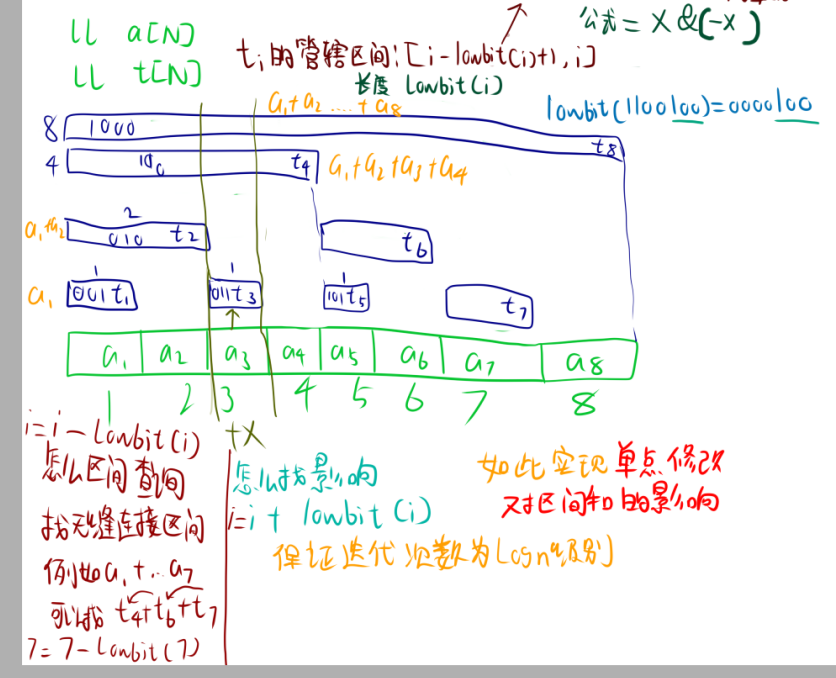 ll a[N]
ll t[N]
公式 = X &(-X)
ti的管辖区间:[i-lowbit(i)+1,i]
长度 lowbit(i)
lowbit(1100100)=0000100
a1+a2 ....+a8
8 1000 t8
4 100 t4 a1+a2+a3+a4
a1+a2 2 010 t2 t6
a1 1 001 t1 1 011 t3 1 101 t5 t7
a1 a2 a3 a4 a5 a6 a7 a8
1 2 3 4 5 6 7 8
+X
i=i-lowbit(i)
怎么区间查询
找无缝连接区间
例如a1+...a7
可以找 t4+t6+t7
7=7-lowbit(7)
怎么找影响
i=i+lowbit(i)
保证迭代次数为Logn级别
如此实现 单点修改
对区间和的影响